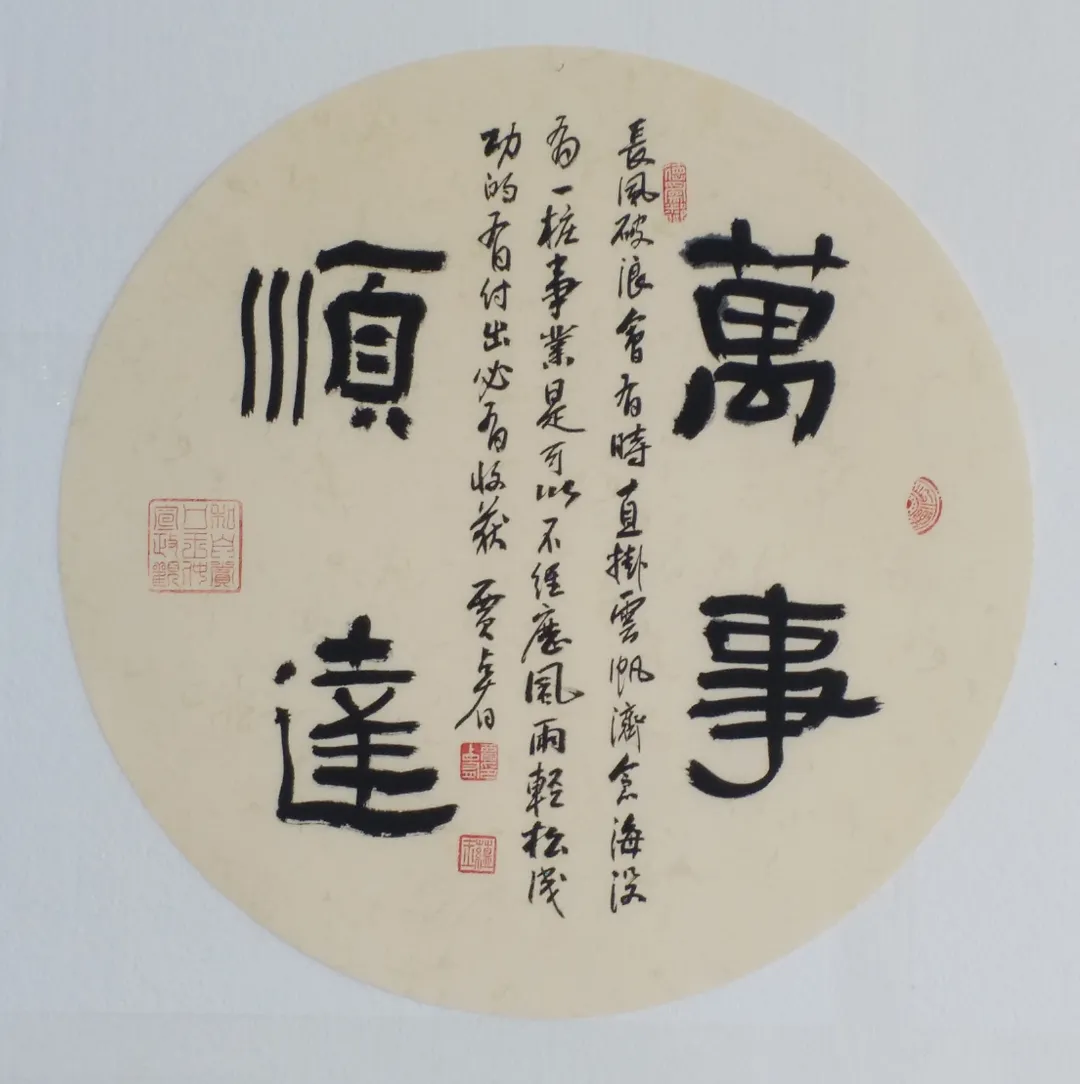 萬事
長風破浪會有時直掛雲帆濟倉海沒
有一桩事業是可以不經歷風雨輕松成
功的有付出必有收获 賈
順達